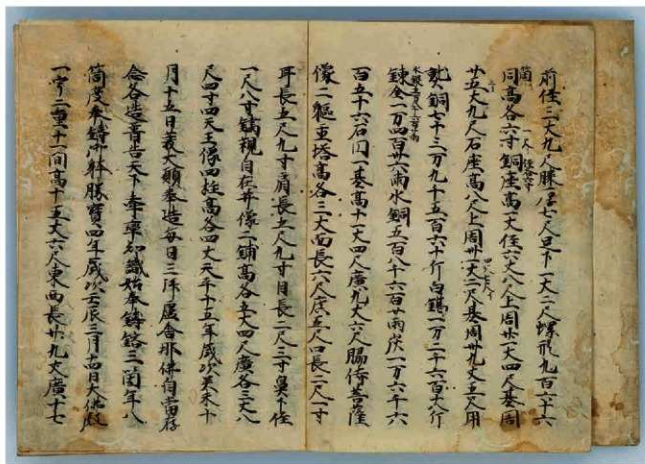 前径三丈九尺膝厚七尺足下一丈二尺螺形九百六十六
箇高各一尺径各六寸
同高各六寸銅座高一丈径六丈八尺上周廿一丈四尺基周
廿五丈九尺石座高八尺上周廿一丈二尺基周廿九丈五尺用
熟銅七十三万九千五百六十斤白鑞一万二千六百十八斤
錬金一万四百廿六両水銅五百八十六百廿両炭一万六千六
百五十六石円一基高十一丈四尺廣九丈六尺脇侍菩薩
像二躯東塔高各三丈面長六尺廣五尺口長二尺一寸
耳長五尺九寸肩長五尺九寸目長二尺三寸鼻下径
一尺八寸繍観自在并像二鋪高各五丈四尺廣各三丈八
尺四寸四天王像四柱高各四丈天平十五年歳次癸未十
月十五日義大願奉造毎日三拝盧舎那佛自當存
念各造普告天下奉率知識始奉鋳鎔三箇年八
箇度奉鋳 勝寶四年歳次壬辰三月十四日大佛殿
一宇二重十一間高十五丈六尺東西長廿九丈廣十七